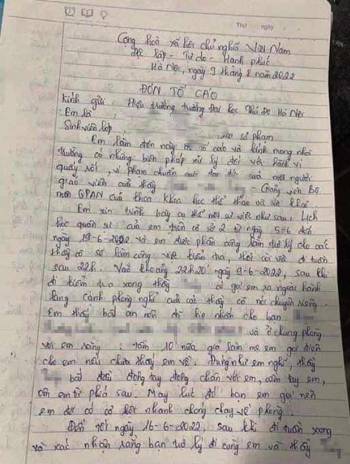 Thứ ngày
Cộng hoà xã hội chủ nghĩa Việt Nam
Độc lập - Tự do - Hạnh phúc
Hà Nội, ngày 9 tháng 8 năm 2022
ĐƠN TỐ CÁO
Kính gửi: Hiệu trưởng trường Đại học Thủ Đô Hà Nội
Em là
Sinh viên lớp sư phạm
Em làm đơn này để tố cáo và kính mong nhà
trường có những biện pháp xử lý đối với hành vi
quấy rối, vi phạm chuẩn mực đạo đức của một người
giáo viên của thầy - Giảng viên Bộ
môn GPAN của thuộc Khoa học thể thao và Sức khỏe.
Em xin trình bày cụ thể nội sự việc như sau: Lịch
học quân sự của em trên cơ sở 2 từ ngày 5-6 đến
ngày 19-6-2022 và em được phân công làm trợ lý cho các
thầy cô để làm công việc kiểm tra, và đi tuần
sau 22h. Vào khoảng 22h20 ngày 8-6-2022, sau khi
đi kiểm tra xong thầy có gọi em ra ngoài hành
lang cạnh phòng nghỉ của các thầy cô nói chuyện riêng.
Em thấy bất an nên đã hẹn nhắn cho bạn
và ở chung phòng
với em rằng: tầm 10 nữa giả làm mẹ em gọi điện
cho em nếu chưa thấy em về. Đúng như em nghĩ, thầy
bắt đầu động tay động chân với em, cầm tay em,
ôm em từ phía sau. May lúc đó bạn em gọi nên
em đã có cớ kết nhanh chóng chạy về phòng.
Đến tối ngày 16-6-2022, sau khi đi tuần xong
và xác nhận rằng bạn trợ lý đi cùng em và thầy